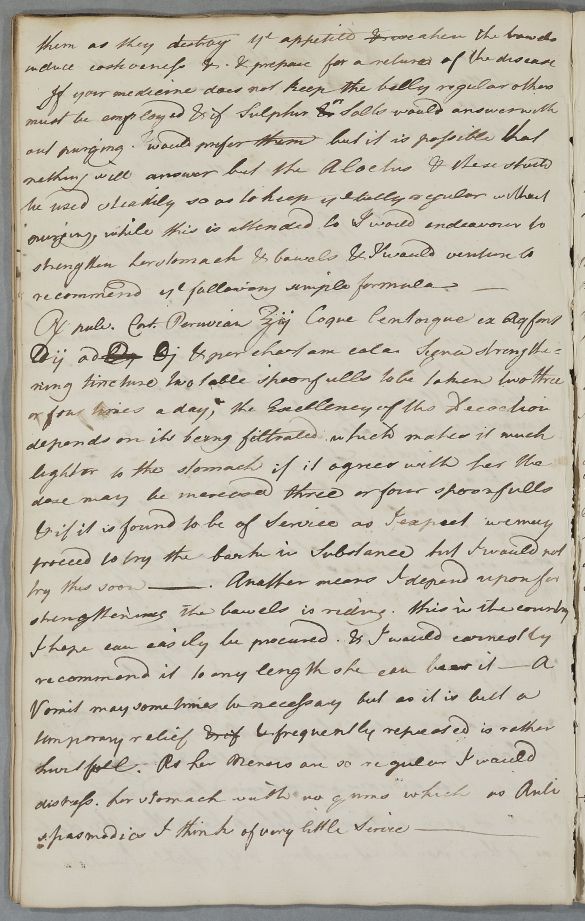 them as they destroy ye appetite & weaken the bowels
induce costiveness &c. & prepare for a return of the disease
If your medicine does not keep the belly regular others
must be employed & if Sulphur & Salts would answer with
out purging. I would prefer them but it is possible that
nothing will answer but the Aloetics & these should
be used steadily so as to keep ye belly regular without
purging, while this is attended to I would endeavour to
strengthen her stomach & bowels & I would venture to
recommend ye following simple formula —
℞ pulv. Cort. Peruvian ʒiij Coque Centorque ex Aq font
℔ij ad ℔j & per chartam cola Signa strengthe-
ning tincture two table spoonfulls to be taken two three
or four times a day, the Excellency of this Decoction
depends on its being filtrated which makes it much
lighter to the stomach if it agrees with her the
dose may be increased three or four spoonfulls
& if it is found to be of Service as I expect we may
proceed to try the bark in Substance but I would not
try this soon —. Another means I depend upon for
strengthening the bowels is riding. this in the country
I hope can easily be procured. & I would earnestly
recommend it to any length she can bear it — A
Vomit may sometimes be necessary but as it is but a
temporary relief & if frequently repeated is rather
hurtfull. As her Menses are so regular I would
distress her stomach with no gums which as Anti
spasmodics I think of very little Service —